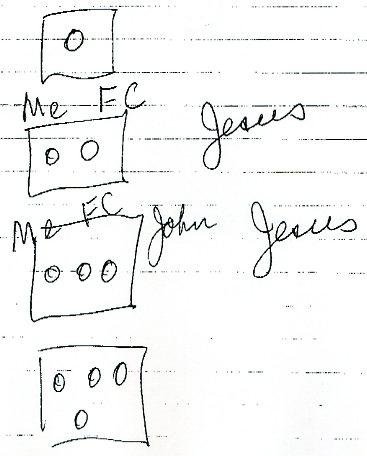 Me FC
Jesus
Me FC John Jesus